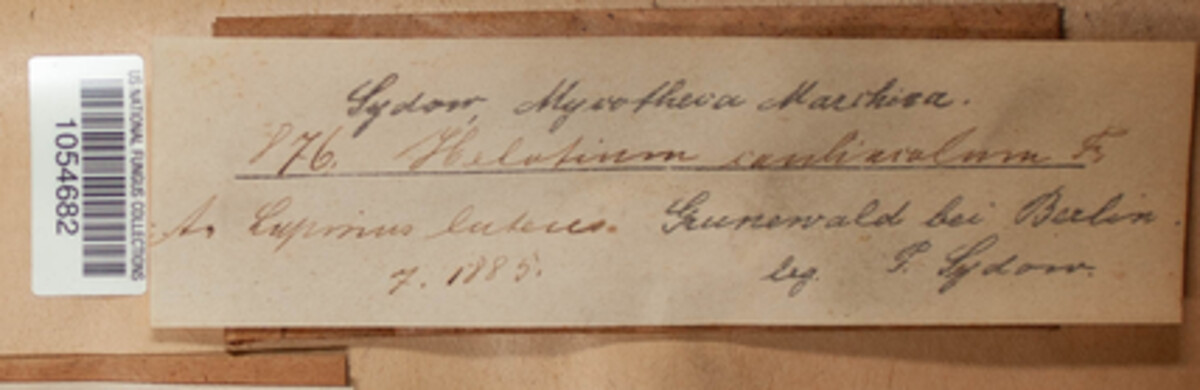 US NATIONAL FUNGUS COLLECTIONS
1054682
Sydow, Mycotheca Marchica.
876. Helotium caulicolum F.
A. Lupinus luteus. Grunewald bei Berlin.
7. 1885. leg. P. Sydow.